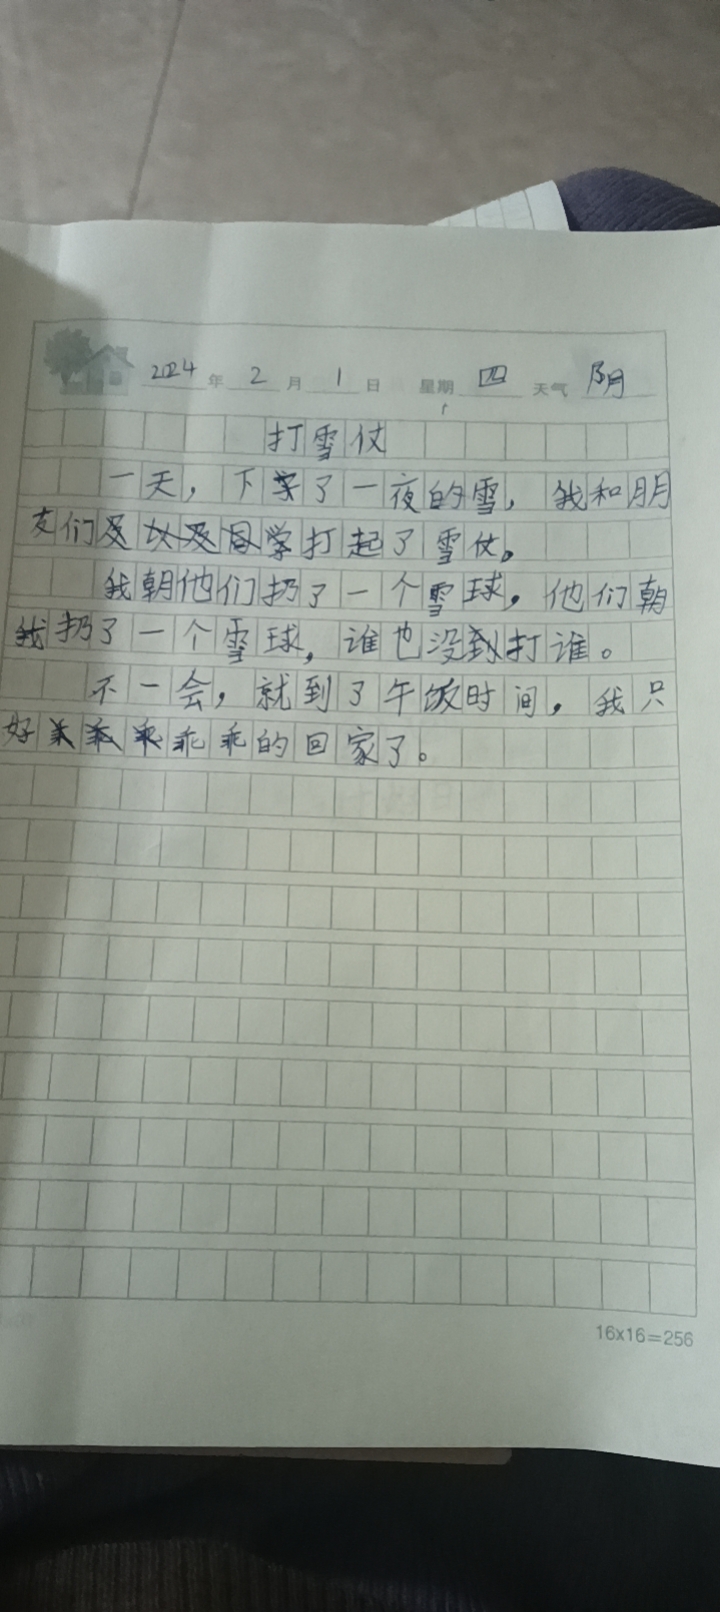 2024 年 2 月 1 日 星期 四 天气 阴
打雪仗
一天，下了一夜的雪，我和朋
友们打起了雪仗。
我朝他们扔了一个雪球，他们朝
我扔了一个雪球，谁也没到打谁。
不一会，就到了午饭时间，我只
好乖乖的回家了。
16x16=256